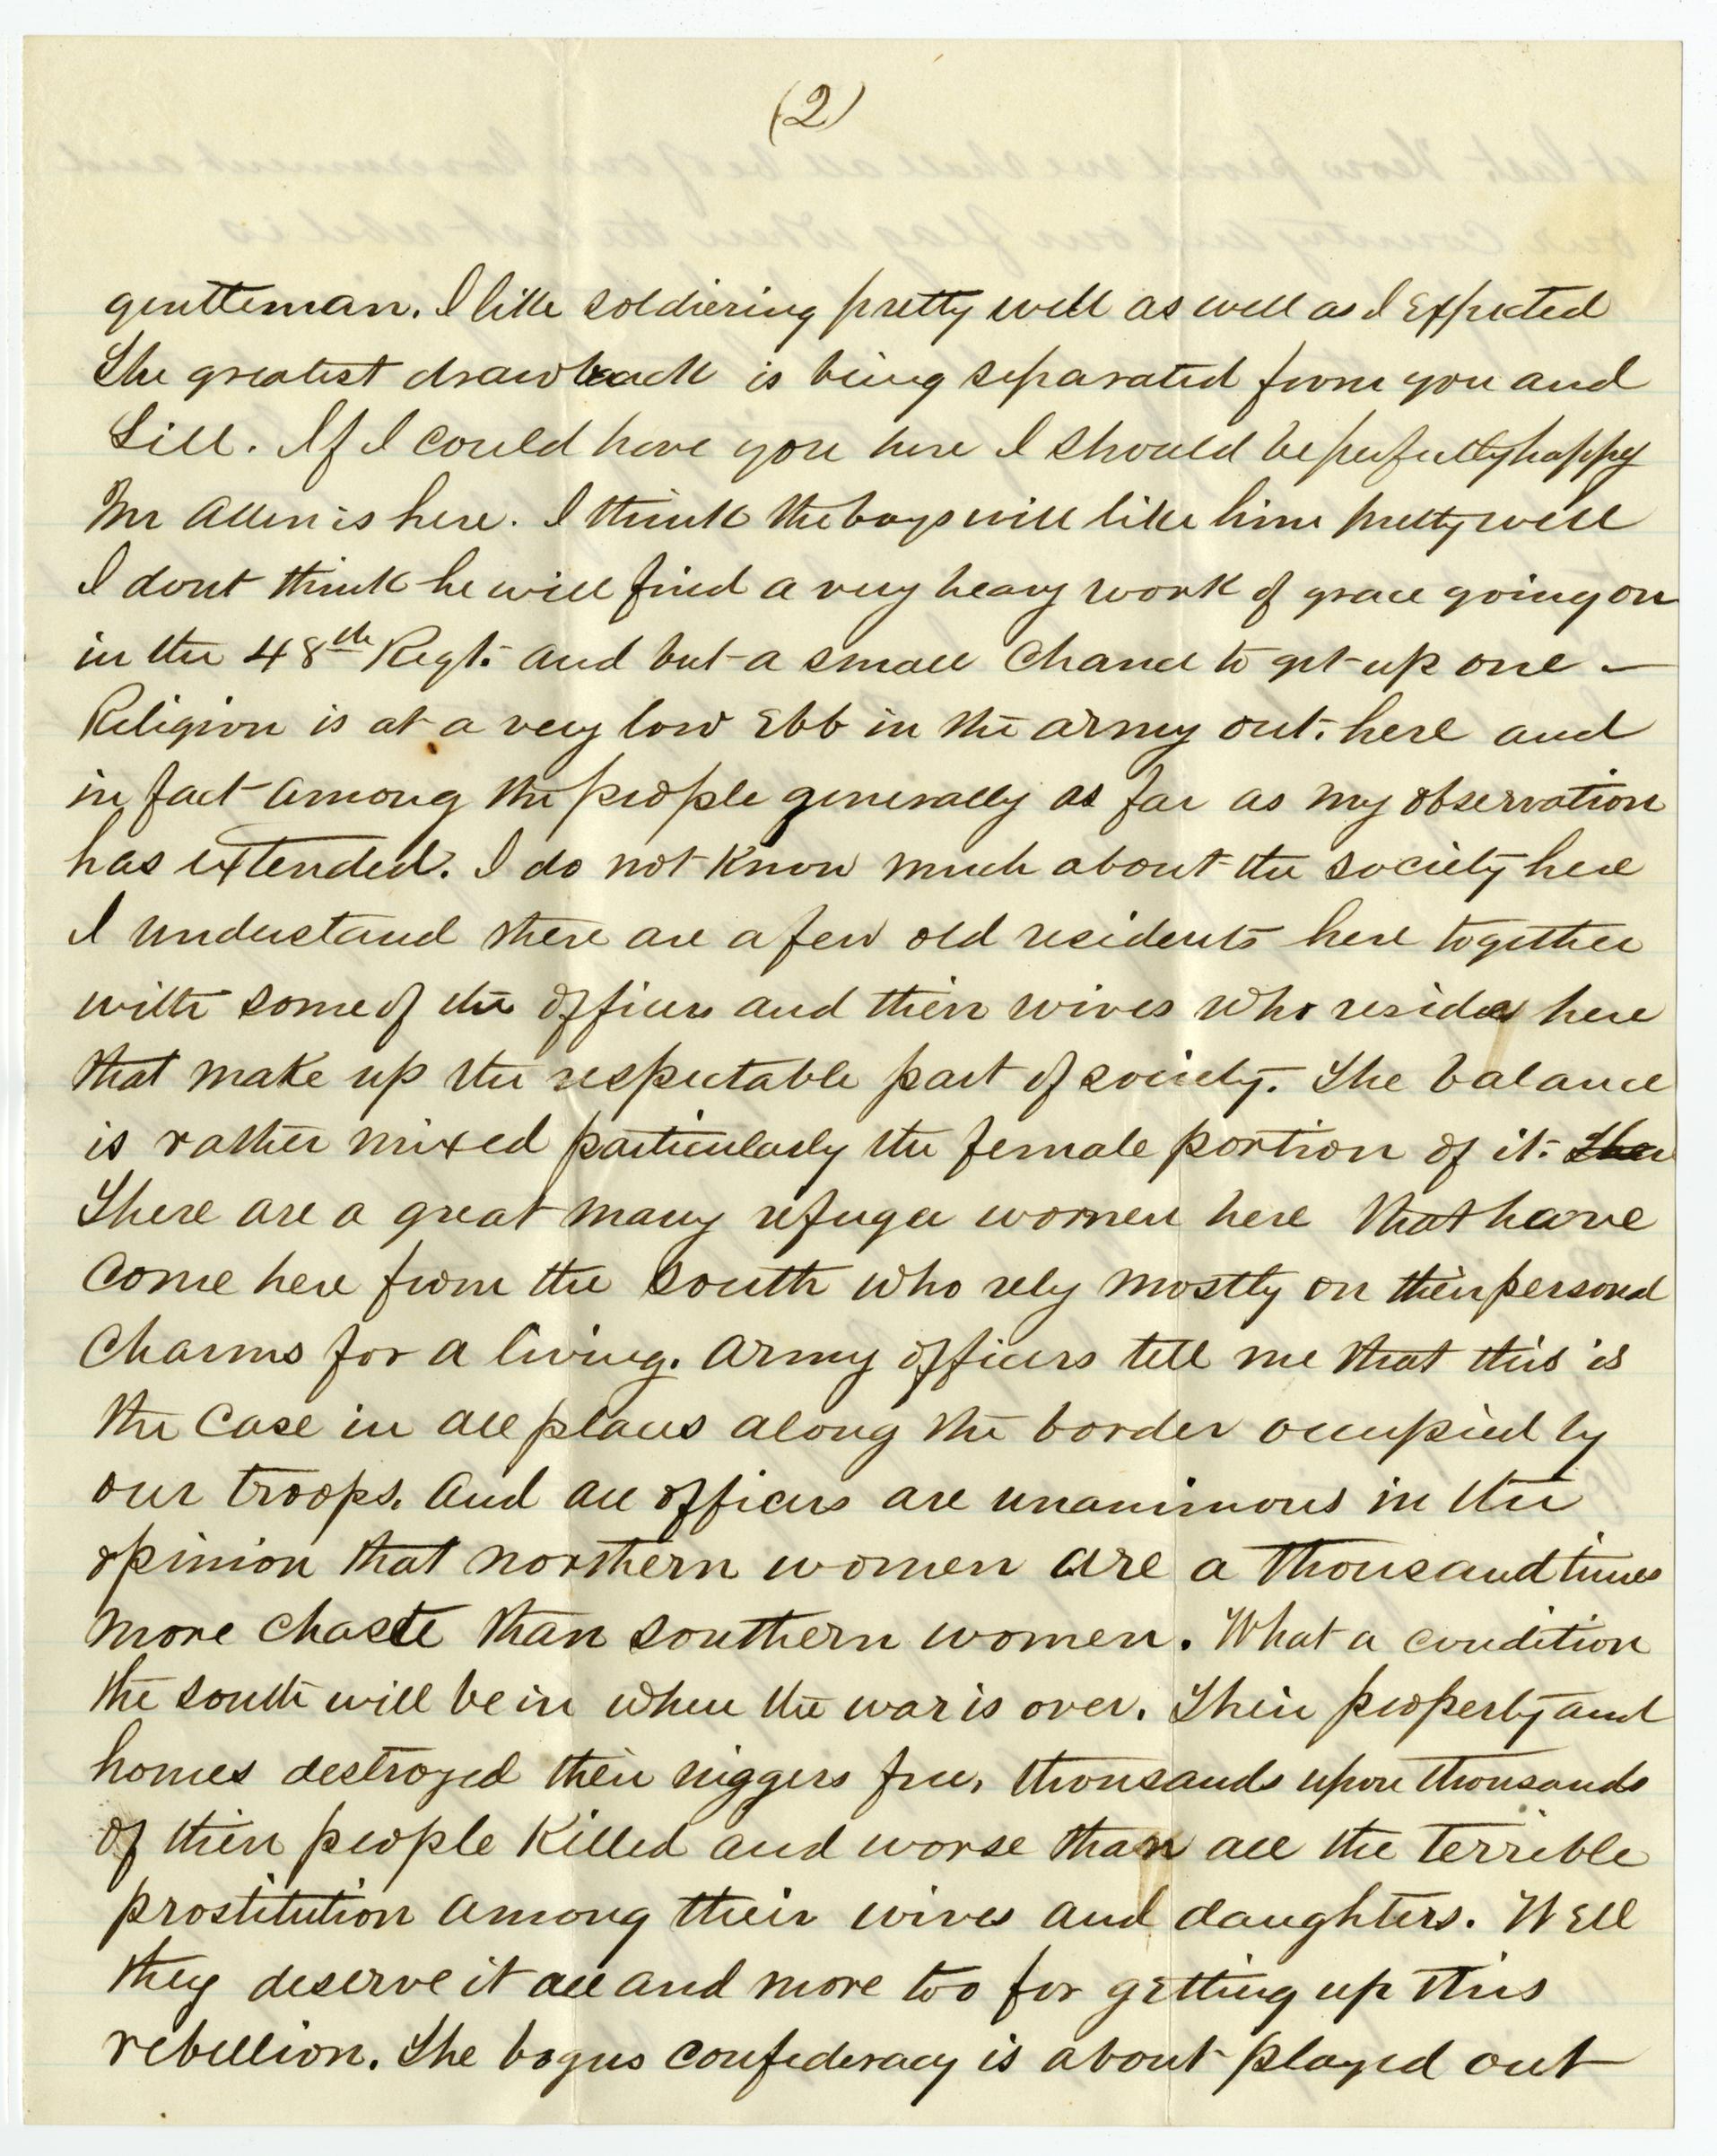 (2)
gentleman. I like soldiering pretty well as well as I Expected
The greatest drawback is being separated from you and
Lill. If I could have you here I should be perfectly happy
Mr Allen is here. I think the boys will like him pretty well
I dont think he will find a very heavy work of grace going on
in the 48th Regt. and but a small chance to get up one –
Religion is at a very low Ebb in the army out here and
in fact among the people generally as far as my observation
has extended. I do not know much about the society here
I understand there are a few old residents here together
with some of the officers and their wives who reside here
that make up the respectable part of society. The balance
is rather mixed particularly the female portion of it.
There are a great many refugee women here that have
come here from the south who rely mostly on their personal
charms for a living. Army officers tell me that this is
the case in all places along the border occupied by
our troops. And all officers are unanimous in the
opinion that northern women are a thousand times
more chaste than southern women. What a condition
the south will be in when the war is over. Their property and
homes destroyed their niggers free, thousands upon thousands
of their people killed and worse than all the terrible
prostitution among their wives and daughters. Well
they deserve it all and more too for getting up this
rebellion. The bogus confederacy is about played out